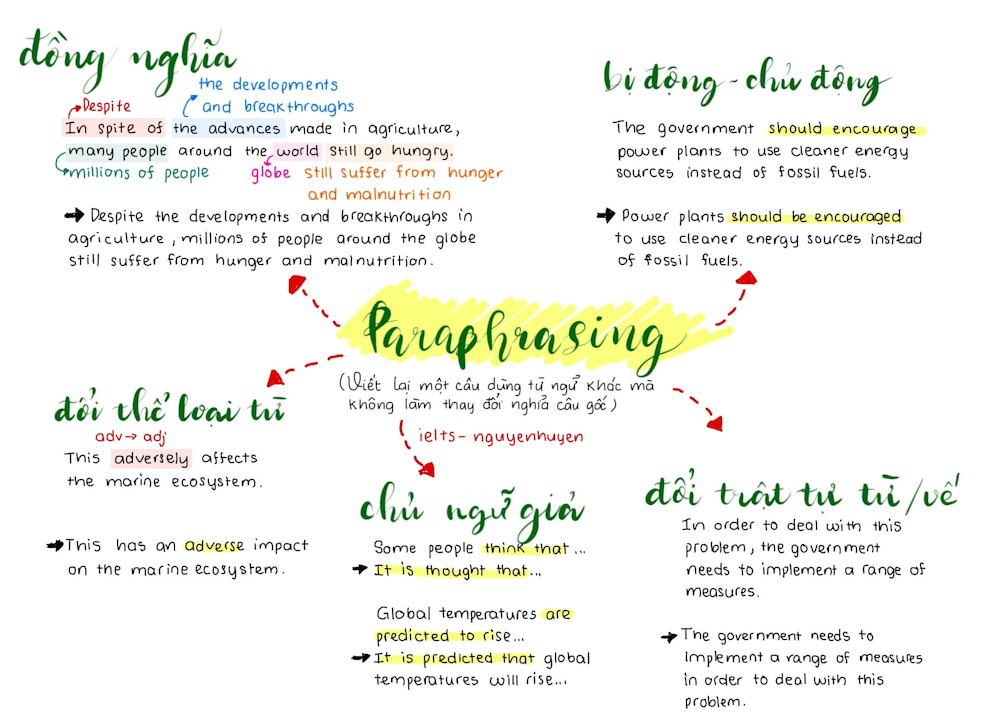 đồng nghĩa
the developments
and breakthroughs
Despite
In spite of the advances made in agriculture,
many people around the world still go hungry.
millions of people
globe
still suffer from hunger
and malnutrition
→ Despite the developments and breakthroughs in
agriculture, millions of people around the globe
still suffer from hunger and malnutrition.
bị động - chủ động
The government should encourage
power plants to use cleaner energy
sources instead of fossil fuels.
→ Power plants should be encouraged
to use cleaner energy sources instead
of fossil fuels.
Paraphrasing
(Viết lại một câu dùng từ ngữ khác mà
không làm thay đổi nghĩa câu gốc)
ielts - nguyenhuyen
đổi thể loại từ
adv → adj
This adversely affects
the marine ecosystem.
→ This has an adverse impact
on the marine ecosystem.
chủ ngữ giả
Some people think that...
→ It is thought that...
Global temperatures are
predicted to rise...
→ It is predicted that global
temperatures will rise...
đổi trật tự từ/vế
In order to deal with this
problem, the government
needs to implement a range of
measures.
→ The government needs to
implement a range of measures
in order to deal with this
problem.